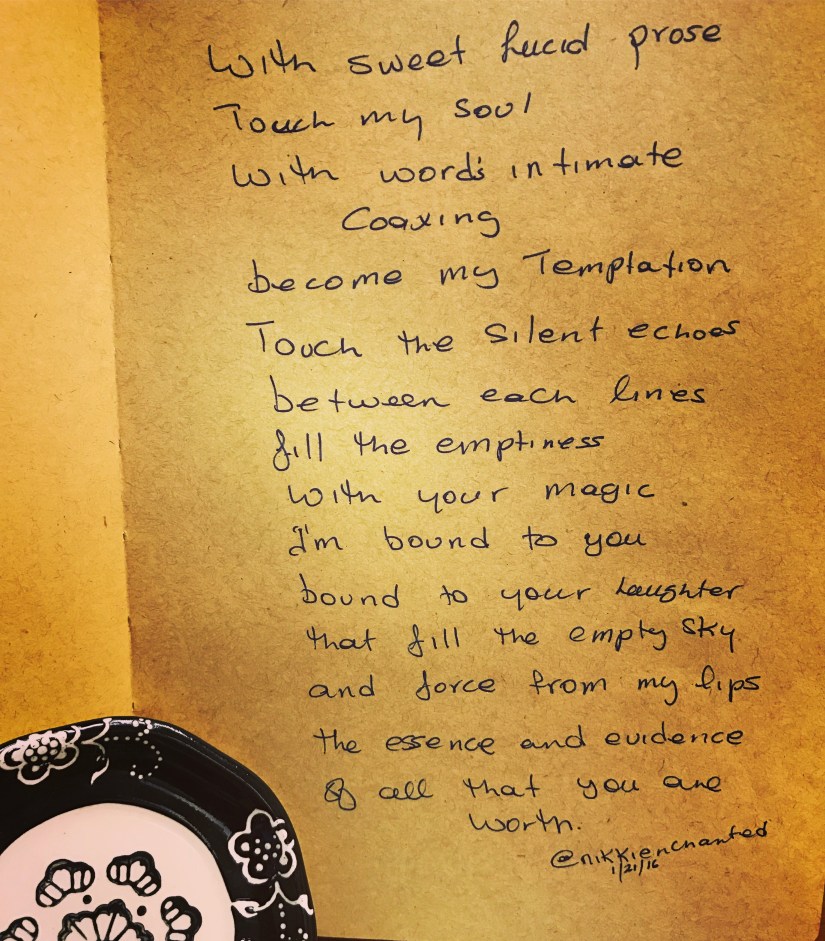 With sweet lucid prose
Touch my soul
With word's intimate
Coaxing
become my Temptation
Touch the silent echoes
between each lines
fill the emptiness
with your magic.
I'm bound to you
bound to your laughter
that fill the empty sky
and force from my lips
the essence and evidence
of all that you are
worth.
@nikkienchanted
1/21/16